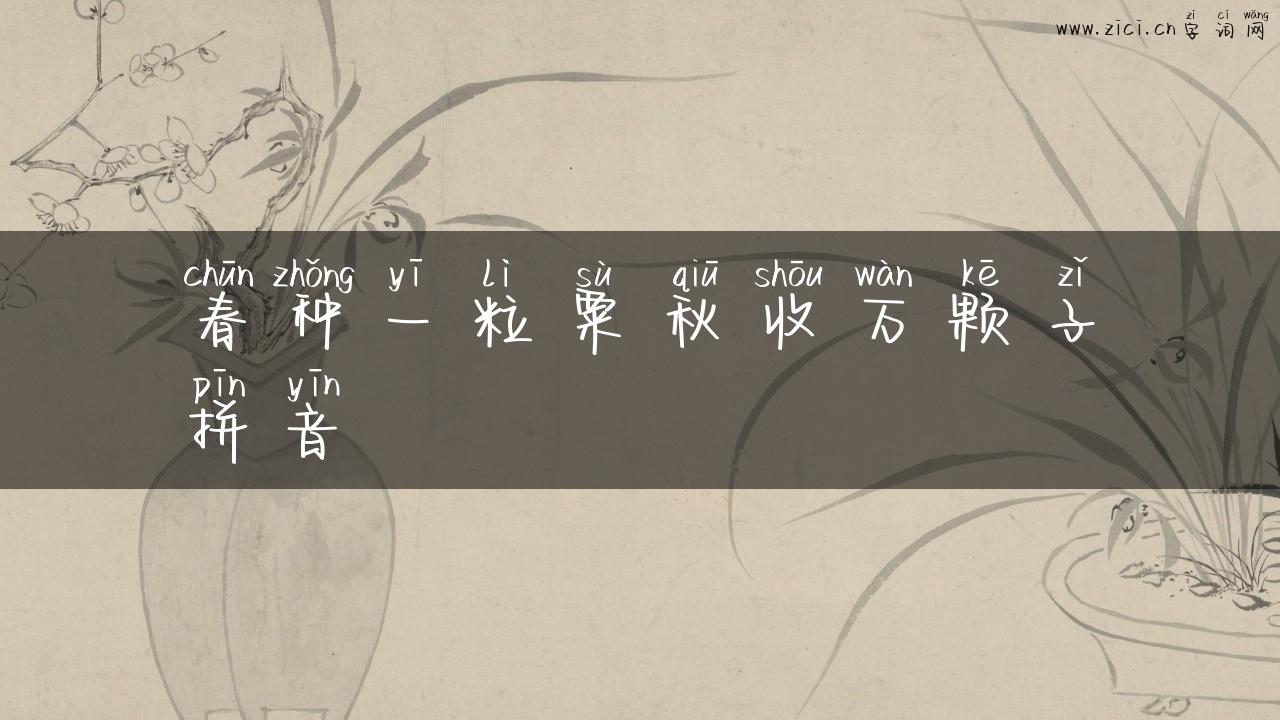 zì cí wǎng
www.zici.cn字词网
chūn zhǒng yī lì sù qiū shōu wàn kē zǐ
春种一粒粟秋收万颗子
pīn yīn
拼音